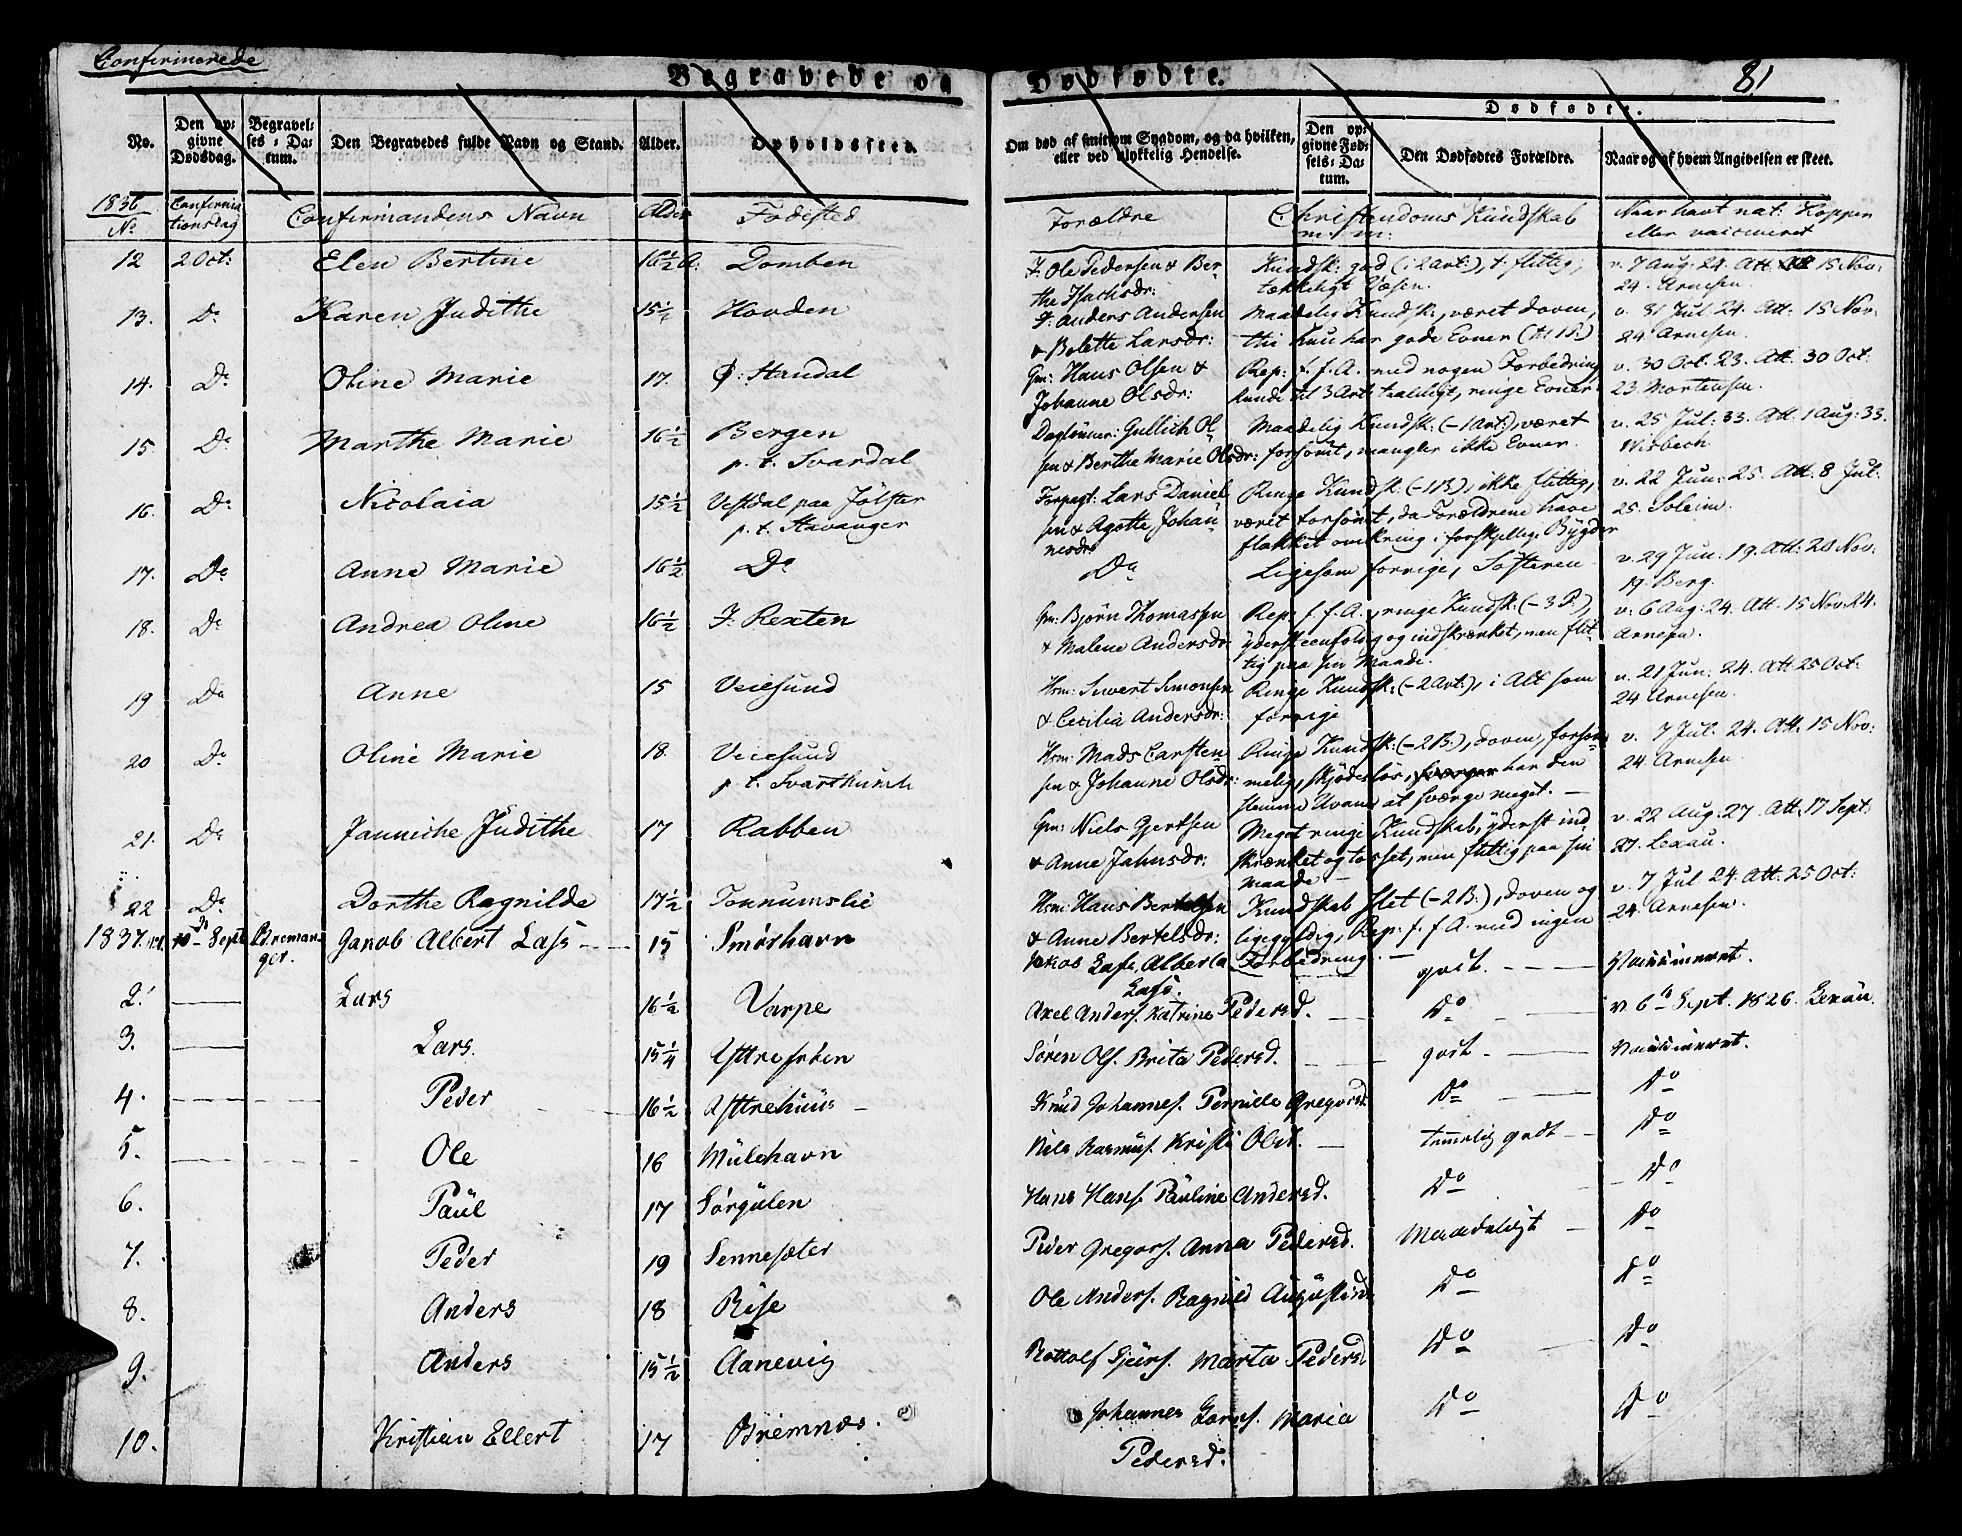 Confirmerede
Begravede og Dødfødte.
81
No.
Den opgivne Dødsdag.
Begravelses-Datum.
Den Begravedes fulde Navn og Stand.
Alder.
Opholdssted.
Om død af smitsom Sygdom, og da hvilken, eller ved ulykkelig Hendelse.
Dødfødte.
Den opgivne Fødsels-Datum.
Den Dødfødtes Forældre.
Naar og af hvem Angivelsen er skeet.
1836 No Confirmationsdag Confirmandens Navn Alder Fødested Forældre Christendoms Kundskab m: m: Naar havt nat: Kopper eller vaccineret
12 2 Oct: Elen Bertine 16½ A: Domben F: Ole Pedersen & Berthe Isachsdr: Kundsk: god (: 2 Art:), t. flittig, tækkeligt Væsen. v. 7 Aug: 24. Att. 15 Nov: 24. Arnesen.
13. Do Karen Judithe 15½ Hovden F. Anders Andersen & Bolette Larsdr: Maadelig Kundsk:, været doven, thi hun har gode Evner v. 31 Jul. 24. Att: 15 Nov: 24 Arnesen.
14. Do Oline Marie 17. Standal Gm: Hans Olsen & Johanne Olsdr: Rep: f. f. A. med nogen Forbedring kunde til 3 Art: taaleligt, ringe Evner v. 30 Oct. 23. Att. 30 Oct: 23 Mortensen.
15 Do Marthe Marie 16½ Bergen p. t. Svardal Daglönner: Gullich Olsen & Berthe Marie Olsdr: Maadelig Kundsk: (-1 Art:), været forsömt, mangler ikke Evner. v. 25 Jul: 33. Att. 1 Aug: 33. Wisbech
16. Do Nicolaia 15½ Vestdal paa Jölster p. t. Stavanger Forpagt: Lars Danielsen & Agotte Johannesdr Ringe Kundsk: (-1B), ikke flittig, været forsömt, da Forældrene have flakket omkring i forskjellige Bygder v. 22 Jun: 25. Att. 8 Jul: 25. Soleim.
17. Do Anne Marie 16½ Do Do Ligesom forrige, Søsteren v. 29 Jun: 19. Att: 20 Nov: 19. Berg.
18. Do Andrea Oline 16½ F. Rexten Gm: Bjørn Thomassen & Malene Andersdr Rep: f. f. A., ringe Kundsk: (-3 P.), yderst eenfoldig og indskrænket, men flittig paa sin Maade. v. 6 Aug: 24. Att. 15 Nov: 24. Arnesen.
19 Do Anne 15 Veiesund Hsm: Sivert Simonsen & Cecilia Andersdr: Ringe Kundsk: (-2 Art:), i Alt som forrige v. 21 Jun: 24. Att 25 Oct: 24 Arnesen.
20 Do Oline Marie 18. Veiesund p. t. Svarthumle Hsm: Mads Carstensen & Johanne Olsdr: Ringe Kundsk: (-2B:), doven, forsömmelig, skjødeslös, har den slemme Uvane at sværge meget. v. 7 Jul. 24. Att. 15 Nov: 24 Arnesen.
21. Do Janniche Judithe 17 Rabben Gm: Niels Gjertsen & Anne Jahnsdr: Meget ringe Kundskab, yderst indskrænket og tosset, men flittig paa sin maade v. 22 Aug: 27. Att. 17 Sept: 27. Lexau.
22 Do Dorthe Ragnilde 17½ Tonnumslie Hsm: Hans Bertelsen & Anne Bertelsdr: Kundskab slet (-2B:), doven og ligegyldig, Rep: f. f. A. med ingen Forbedring. v. 7 Jul. 24. Att: 25 Oct: 24. Arnesen.
1837. No 1. 10 Sept Bremanger. Jacob Albert Lass 15 Smörhavn Jakob Lass, Alberta Lass. godt. Vaccineret.
2. Lars 16½ Varpe Axel Anders. Katrine Pedersd. Do V. 6te Sept. 1826. Lexau.
3. Lars. 15¼ Yttrefröen Sören Ols. Brita Pedersd. godt Vaccineret.
4. Peder 16½ Yttrehuus Knud Johannes. Pernille Gregorsd. Do Do
5. Ole 16 Mulehavn Nils Rasmus. Kristi Olsd. temelig godt Do
6. Paul 17 Sörgulen Hans Hans. Pauline Andersd. Do Do
7. Peder 19 Sennesæter Peder Gregors. Anna Pedersd. Maadeligt Do
8. Anders 18 Rise Ole Anders. Ragnild Augustind. Do Do
9. Anders 15½ Aanevig Rottolf Sjurs. Marta Pedersd. Do Do
10. Kristian Ellert 17 Bremnæs. Johannes Lars. Maria Pedersd. Do Do